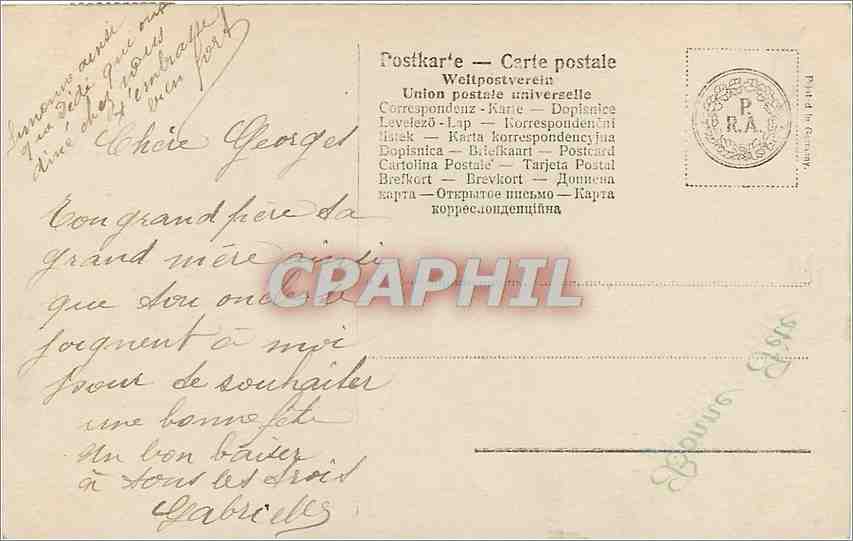 Simone ainsi
que Dédé qui ont
diné chez nous
t'embrasse
bien fort
Chère Georges
Ton grand père ta
grand mère ainsi
que ton oncle se
joignent à moi
pour te souhaiter
une bonne fête
un bon baiser
à tous les trois
Gabrielle
Postkarte — Carte postale
Weltpostverein
Union postale universelle
Correspondenz-Karte — Dopisnice
Levelező-Lap — Korrespondenční
lístek — Karta korrespondencyjna
Dopisnica — Briefkaart — Postcard
Cartolina Postale — Tarjeta Postal
Brefkort — Brevkort — Дописна
карта — Открытое письмо — Карта
корреслонденцiйна
P.
R.A.
Printed in Germany.
CPAPHIL
Bonne Fête